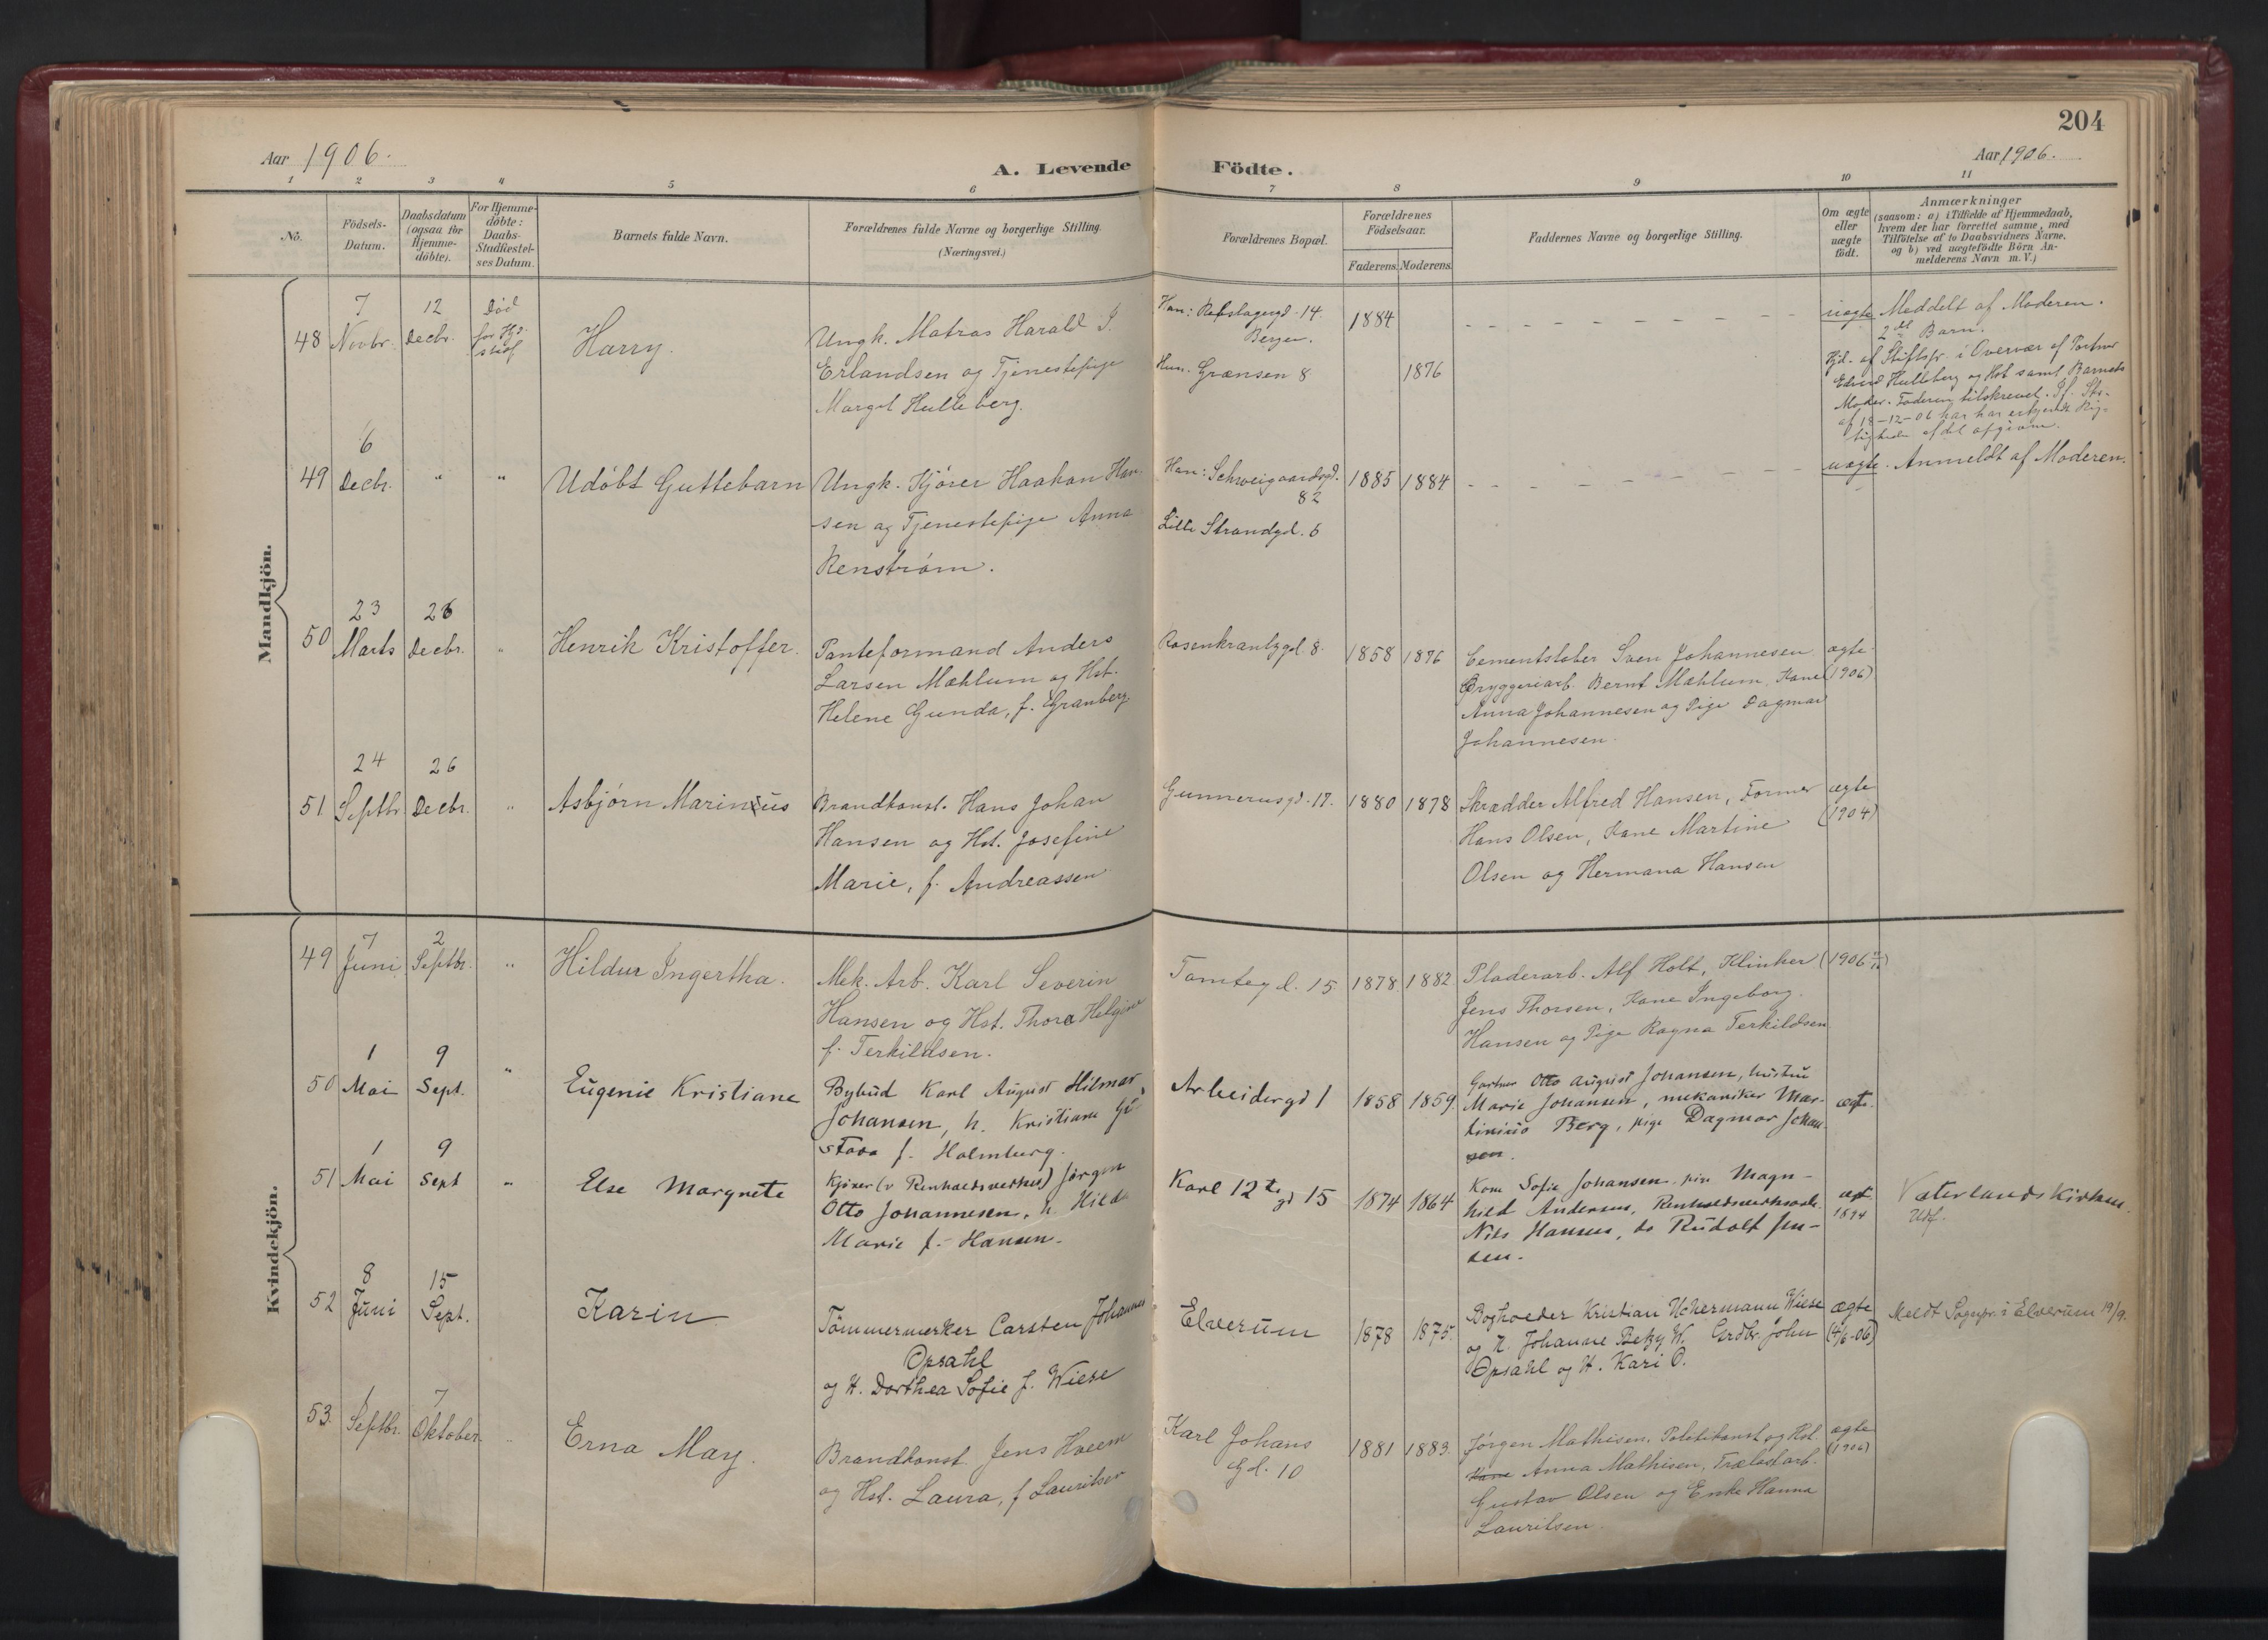 204
Aar 1906.
A. Levende Födte.
Aar 1906.
1 2 3 4 5 6 7 8 9 10 11
No.
Födsels-
Datum.
Daabsdatum
(ogsaa for
Hjemme-
döbte).
For Hjemme-
döbte:
Daabs-
Stadfæstel-
ses Datum.
Barnets fulde Navn.
Forældrenes fulde Navne og borgerlige Stilling.
(Næringsvei.)
Forældrenes Bopæl.
Forældrenes
Födselsaar.
Faderens. Moderens.
Faddernes Navne og borgerlige Stilling.
Om ægte
eller
uægte
födt.
Anmærkninger
(saasom: a) i Tilfælde af Hjemmedaab,
hvem der har forrettet samme, med
Tilföielse af to Daabsvidners Navne.
og b) ved uægtefödte Börn An-
melderens Navn m. V.)
Mandkjön.
48
7
Novbr.
12
Decbr.
Död
for Hjd.
Harry.
Ungk. Matros Harald J.
Erlandsen og Tjenestepige
Margit Hulleberg.
Han: Rebslagergd. 14.
Bergen.
Hun. Grænsen 8
1884
1876
uægte
Meddelt af Moderen.
2det Barn.
Hjd. af Stiftspr. i Overvær af Portner
Edvard Hulleberg og Hst samt Barnets
Moder. Faderen tilskrevet. Jf. Skr.
af 18-12-06 har han erkjendt Rig-
tigheden af det opgivne.
49
6
Decbr.
"
"
Udöbt Guttebarn
Ungk. Kjörer Haakon Han-
sen og Tjenestepige Anna
Renström.
Han: Schweigaardsgd.
82
Lille Strandgd. 6
1885 1884
uægte. Anmeldt af Moderen.
50
23
Marts
26
Decbr.
"
Henrik Kristoffer.
Panteformand Anders
Larsen Mæhlum og Hst.
Helene Gunda, f. Granberg.
Rosenkrantzgd. 8.
1858 1876
Cementstøber Sven Johannesen
Bryggeriarb. Bernt Mæhlum, Kone
Anna Johannesen og Pige Dagmar
Johannesen.
ægte.
(1906)
51
24
Septbr
26
Decbr.
"
Asbjørn Marinius
Brandkonst. Hans Johan
Hansen og Hst. Josefine
Marie, f. Andreassen
Gunnerusgd. 17.
1880 1878
Skrædder Alfred Hansen, Former
Hans Olsen, Kone Martine
Olsen og Hermana Hansen
ægte
(1904)
Kvindekjön.
49
7
Juni
2
Septbr.
"
Hildur Ingertha.
Mek. Arb. Karl Severin
Hansen og Hst. Thora Helgine
f. Terkildsen.
Tomtegd. 15
1878. 1882.
Pladerarb. Alf Holt, Klinker
Jens Thorsen, Kone Ingeborg
Hansen og Pige Ragna Terkildsen
(1906
50
1
Mai
9
Sept.
"
Eugenie Kristiane
Bybud Karl August Hilmar
Johansen, h. Kristiane Gu-
stava f. Holmberg.
Arbeidergd 1
1858 1859.
Gartner Otto August Johansen, hustru
Marie Johansen, mekaniker Mar-
tinius Berg, pige Dagmar Johan-
sen.
ægte.
51
1
Mai
9
Sept
"
Else Margrete
Kjører (v Renholdsverket) Jørgen
Otto Johannesen, h. Hilda
Marie f. Hansen.
Karl 12tes gd 15
1874 1864
Kone Sofie Johansen, pige Magn-
hild Andersen, Renholdsverksarb.
Nils Hansen, do Rudolf Jen-
sen.
ægt.
1894
Vaterlands Kirkens
Utf.
52
8
Juni
15
Sept.
Karin
Tömmermerker Carsten Johannes
Opsahl
og H. Dorthea Sofie f. Wiese
Elverum
1878 1875.
Bogholder Kristian Uchermann Wiese
og H. Johanne Betzy W. Grdbr. John
Opsahl og H. Kari O.
ægte
(4/6-06)
Meldt Sognepr. i Elverum 19/9.
53.
1
Septbr.
7
Oktober.
"
Erna May.
Brandkonst. Jens Hveem
og Hst. Laura, f. Lauritsen
Karl Johans
Gd. 10
1881 1883.
Jörgen Mathisen, Politikonst og Hst.
Kone Anna Mathisen, Trælastarb.
Gustav Olsen og Enke Hanna
Lauritsen.
ægte
(1906)